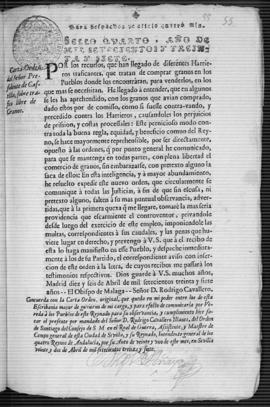 Para despachos de oficio quatro mrs.
SELLO QUARTO, AÑO DE
MIL SETECIENTOS Y TREIN-
TA Y SIETE.
Carta-Orden
del Señor Pre-
sidente de Cas-
tilla, sobre tra-
fico libre de
Granos.
POR los recursos, que han llegado de diferentes Harrie-
ros traficantes, que tratan de comprar granos en los
Pueblos donde los encontraràn, para venderlos, en los
que mas se necessitan. He llegado à entender, que en algunos
se les ha aprehendido, con los granos que avian comprado,
dado estos por de comisso, como si fuesse contra-vando, y
precedido contra los Harrieros, causandoles los perjuicios
de prision, y costas procesales: Este pernicioso modo con-
tra toda la buena regla, equidad, y beneficio comun del Reyno,
se hace mayormente reprehensible, por ser directamente,
opuesto à las ordenes, que por punto general he comunicado,
para que se mantenga en todas partes, con plena libertad el
comercio de granos, sin embarazarle, con pretexto alguno la
saca de ellos: En esta inteligencia, y à mayor abundamiento,
he resuelto expedir este nuevo orden, que circularmente se
comunique à todas las Justicias, à fin de que sin escusa, ni
pretexto alguno, salten à su mas puntual observancia, adver-
tidas, que à la primera quexa que me llegare, tomarè la mas seria
providencia que escarmiente el contraventor, privandole
desde luego del exercicio de este empleo, imponiendole las
multas, correspondientes à sus caudales, y las penas que hu-
viere lugar en derecho, y prevengo à V.S. que à el recibo de
esta lo haga manifiesto en esse Pueblo, y despache immediata-
mente à los de su Partido, orden correspondiente con inser-
cion de esta à la letra, de cuyos recibos me passarà los
testimonios respectivos. Dios guarde à V.S. muchos años,
Madrid diez y seis de Abril de mil setecientos treinta y siete
años. El Obispo de Malaga. Señor D. Rodrigo Cavallero,
Concuerda con la Carta Orden, original, que queda en mi poder entre los de esta
Escribania mayor de govierno de mi cargo, y para efecto de comunicarla por Ve-
reda à los Pueblos de este Reynado para su observancia, y cumplimiento hice sacar
el presente por mandado del Señor D. Rodrigo Cavallero Illanes, del Orden
de Santiago del Consejo de S. M. en el Real de Guerra, Assistente, y Maestre de
Campo general de esta Ciudad de Sevilla, y su Reynado, Intendente general de los
quatro Reynos de Andalucia, por su Auto de veinte y uno de este mes, en Sevilla
veinte y dos de Abril de mil setecientos treinta y siete.